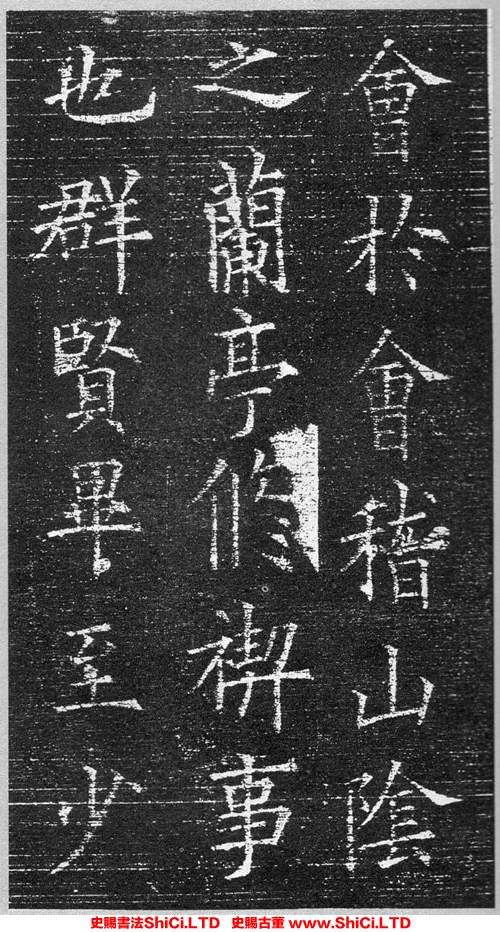 會於會稽山陰
之蘭亭脩禊事
也群賢畢至少
史賜書法ShiCi.LTD 史賜古董 www.ShiCi.LTD